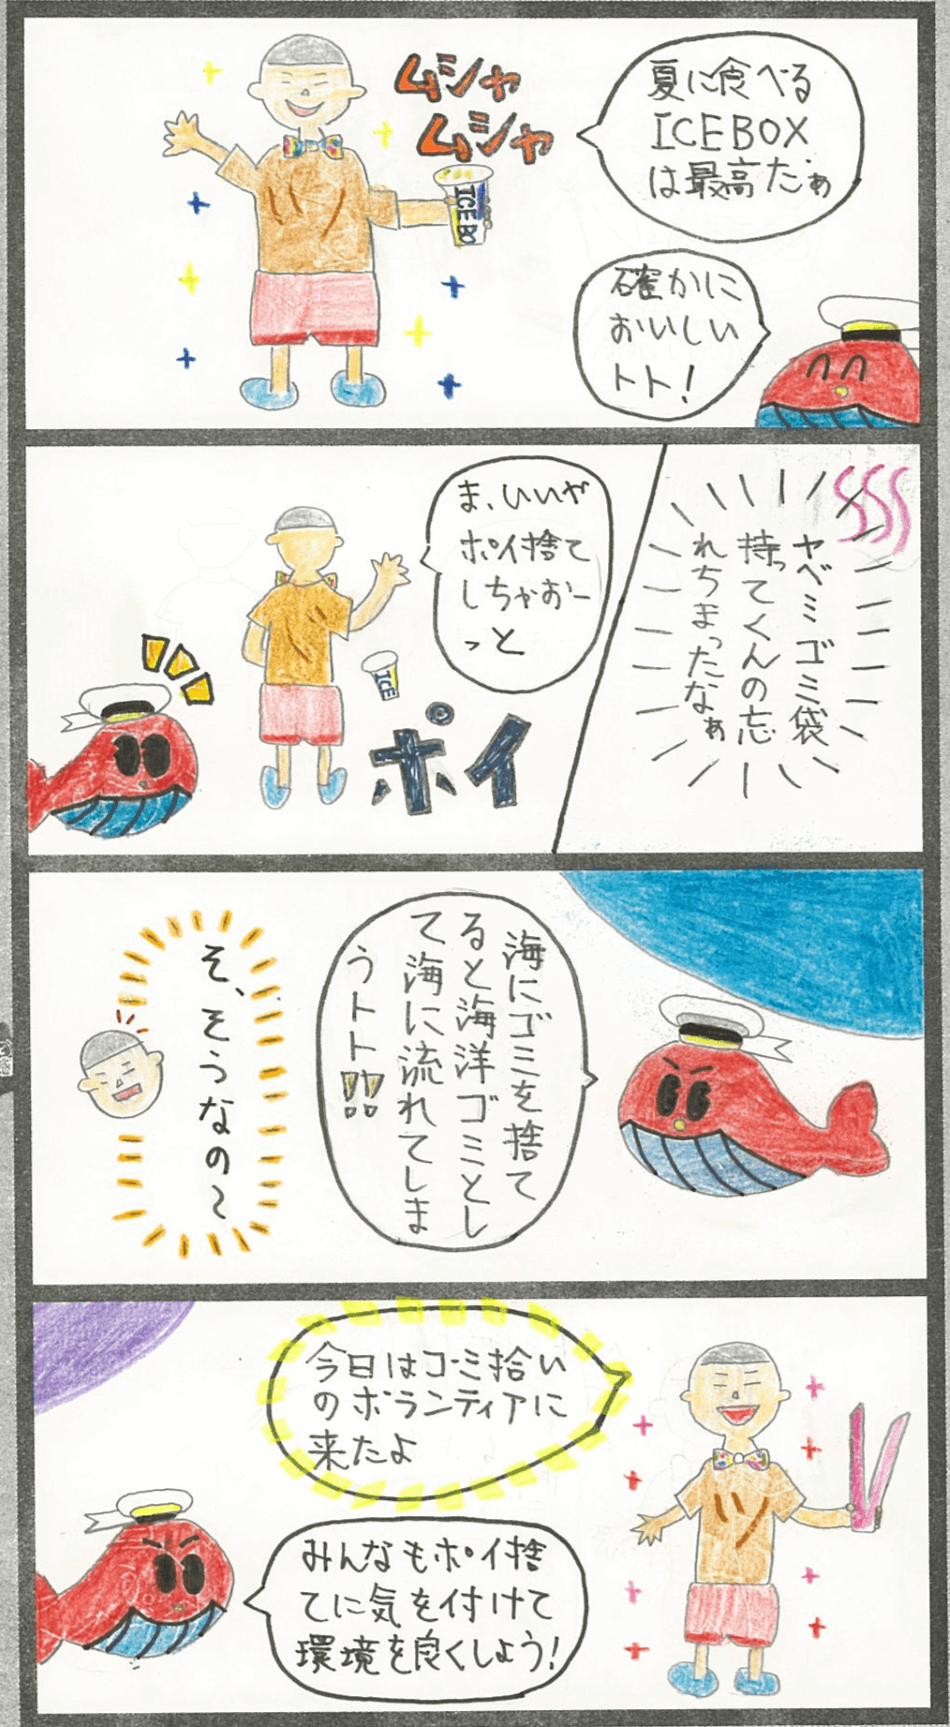 ムシャ
ムシャ
夏に食べる
ICEBOX
は最高だぁ
ICE BO
確かに
おいしい
トト！
ヤベミゴミ袋
持ってくんの忘
れちまったなぁ
ま、いいや
ポイ捨て
しちゃおー
っと
ICE
ポイ
海にゴミを捨て
ると海洋ゴミとし
て海に流れてしま
うトト!!
そ、そうなの〜
今日はゴミ拾い
のボランティアに
来たよ
みんなもポイ捨
てに気を付けて
環境を良くしよう！